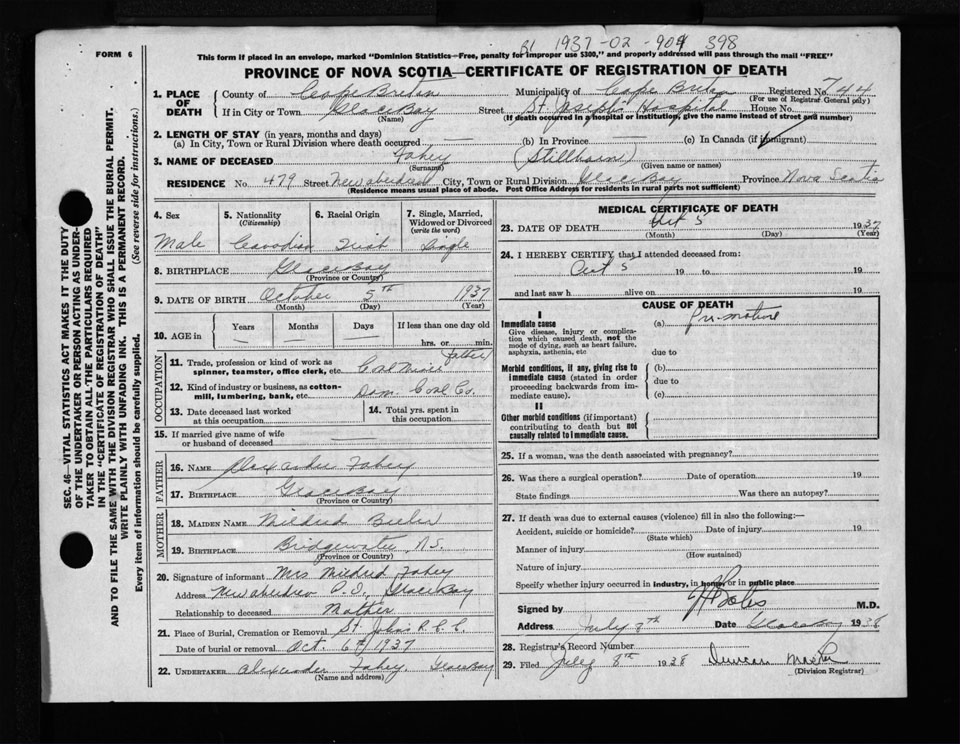 1937-02-909 398
FORM 6
This form if placed in an envelope, marked "Dominion Statistics—Free, penalty for improper use $300," and properly addressed will pass through the mail "FREE"
PROVINCE OF NOVA SCOTIA—CERTIFICATE OF REGISTRATION OF DEATH
1. PLACE OF DEATH County of Cape Breton Municipality of Cape Breton Registered No. 744
(For use of Registrar General only)
If in City or Town Glace Bay Street St. Joseph's Hospital House No.
(Name) (If death occurred in a hospital or institution, give the name instead of street and number)
2. LENGTH OF STAY (in years, months and days)
(a) In City, Town or Rural Division where death occurred (b) In Province (c) In Canada (if immigrant)
3. NAME OF DECEASED Fahey (Stillborn)
(Surname) (Given name or names)
RESIDENCE No. 479 Street New Aberdeen City, Town or Rural Division Glace Bay Province Nova Scotia
(Residence means usual place of abode. Post Office Address for residents in rural parts not sufficient)
SEC. 46—VITAL STATISTICS ACT MAKES IT THE DUTY
OF THE UNDERTAKER OR PERSON ACTING AS UNDER-
TAKER TO OBTAIN ALL THE PARTICULARS REQUIRED
IN THE "CERTIFICATE OF REGISTRATION OF DEATH"
AND TO FILE THE SAME WITH THE DIVISION REGISTRAR WHO SHALL ISSUE THE BURIAL PERMIT.
WRITE PLAINLY WITH UNFADING INK. THIS IS A PERMANENT RECORD.
Every item of information should be carefully supplied. (See reverse side for instructions.)
4. Sex
Male
5. Nationality
(Citizenship)
Canadian
6. Racial Origin
Irish
7. Single, Married,
Widowed or Divorced
(write the word)
Single
8. BIRTHPLACE Glace Bay
(Province or Country)
9. DATE OF BIRTH October 5th 1937
(Month) (Day) (Year)
10. AGE in Years Months Days If less than one day old
hrs. or min.
OCCUPATION
Father
11. Trade, profession or kind of work as
spinner, teamster, office clerk, etc. Coal Miner
12. Kind of industry or business, as cotton-
mill, lumbering, bank, etc. Dom. Coal Co.
13. Date deceased last worked
at this occupation
14. Total yrs. spent in
this occupation
15. If married give name of wife
or husband of deceased
FATHER
16. NAME Alexander Fahey
17. BIRTHPLACE Glace Bay
(Province or Country)
MOTHER
18. MAIDEN NAME Mildred
19. BIRTHPLACE Bridgewater, N.S.
(Province or Country)
20. Signature of informant Mrs Mildred Fahey
Address New Aberdeen Glace Bay
Relationship to deceased Mother
21. Place of Burial, Cremation or Removal St. John's
Date of burial or removal Oct. 6th 1937
22. UNDERTAKER Alexander Fahey, Glace Bay
(Name and address)
MEDICAL CERTIFICATE OF DEATH
23. DATE OF DEATH Oct 5 1937
(Month) (Day) (Year)
24. I HEREBY CERTIFY that I attended deceased from:
Oct 5 19 to 19
and last saw h alive on 19
CAUSE OF DEATH
I
Immediate cause
Give disease, injury or complica-
tion which caused death, not the
mode of dying, such as heart failure,
asphyxia, asthenia, etc
(a) Pre-mature
due to
Morbid conditions, if any, giving rise to
immediate cause (stated in order
proceeding backwards from im-
mediate cause).
(b)
due to
(c)
II
Other morbid conditions (if important)
contributing to death but not
causally related to immediate cause.
25. If a woman, was the death associated with pregnancy?
26. Was there a surgical operation? Date of operation 19
State findings Was there an autopsy?
27. If death was due to external causes (violence) fill in also the following:—
Accident, suicide or homicide? Date of injury 19
(State which)
Manner of injury
(How sustained)
Nature of injury
Specify whether injury occurred in industry, in home, or in public place
Signed by M.D.
Address July 7th Date Glace Bay 1938
28. Registrar's Record Number
29. Filed July 8th 1938 Duncan
(Division Registrar)